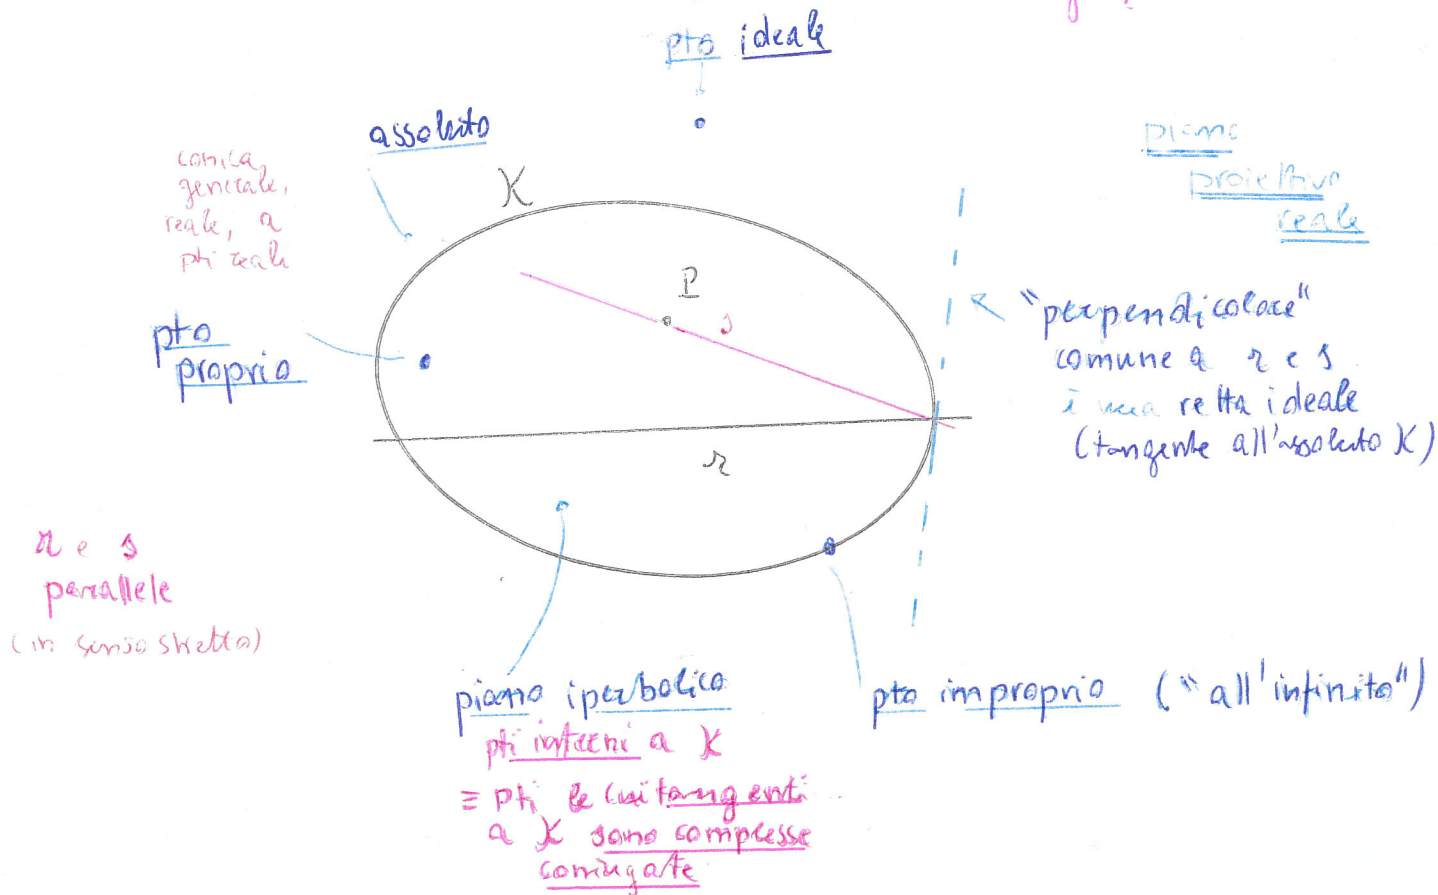 pto ideale
assoluto
conica,
generale,
reale, a
pti reali
K
piano
proiettivo
reale
P
s
pto
proprio
"perpendicolare"
comune a r e s
è una retta ideale
(tangente all'assoluto K)
r
r e s
parallele
(in senso stretto)
piano iperbolico
pti interni a K
≡ pti le cui tangenti
a K sono complesse
coniugate
pto improprio ("all'infinito")